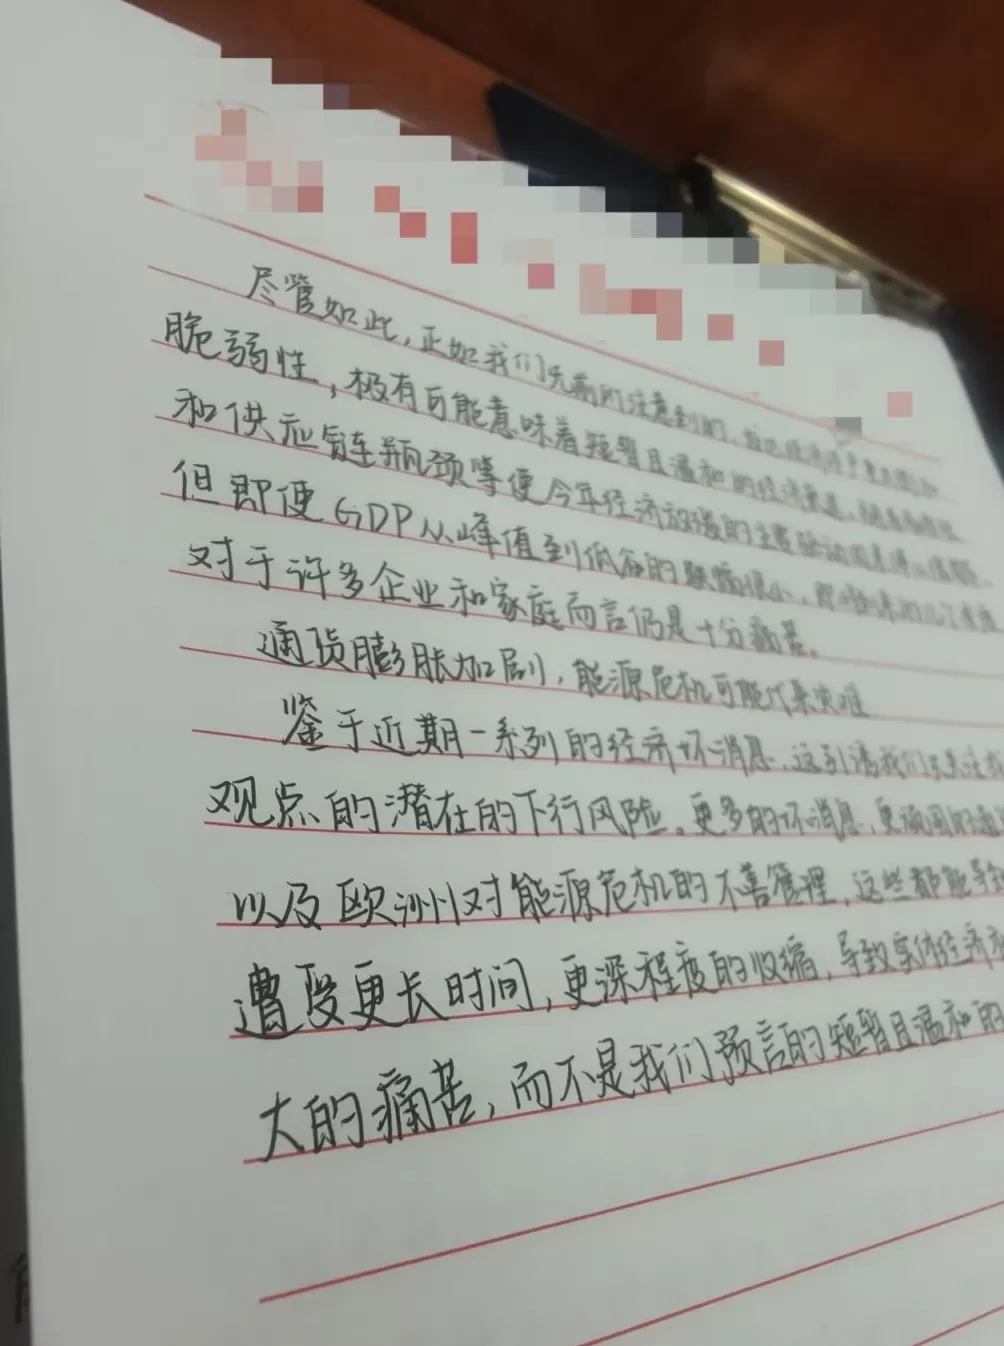 尽管如此,正如我们先前所注意到的,
脆弱性,极有可能意味着短暂且温和的经济衰退,
和供应链瓶颈等使今年经济放缓的主要驱动因素得以缓解
但即便GDP从峰值到低谷的跌幅很小,
对于许多企业和家庭而言仍是十分痛苦。
通货膨胀加剧,能源危机可能代来灾难
鉴于近期一系列的经济坏消息,这引诱我们
观点的潜在的下行风险。更多的坏消息,更顽固的通
以及欧洲对能源危机的不善管理,这些都能导致
遭受更长时间,更深程度的收缩,导致实体经济
大的痛苦,而不是我们预言的短暂且温和的